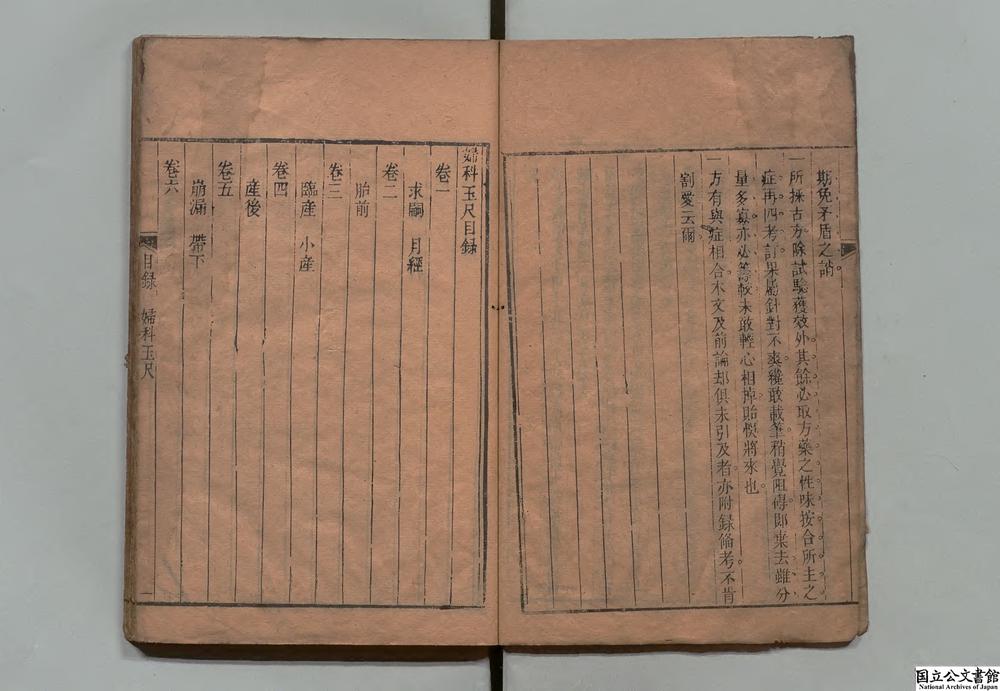 期免矛盾之誚
一所採古方除試驗獲效外其餘必取方藥之性味按合所主之
症再四考訂果屬針對不爽纔敢載筆稍覺阻碍即棄去雖分
量多寡亦必籌較未敢輕心相掉貽悞將來也
一方有與症相合本文及前論却俱未引及者亦附錄俻考不肯
割愛云爾
婦科玉尺目録
卷一
求嗣 月經
卷二
胎前
卷三
臨産 小産
卷四
産後
卷五
崩漏 帶下
卷六
目録 婦科玉尺 一
国立公文書館
National Archives of Japan